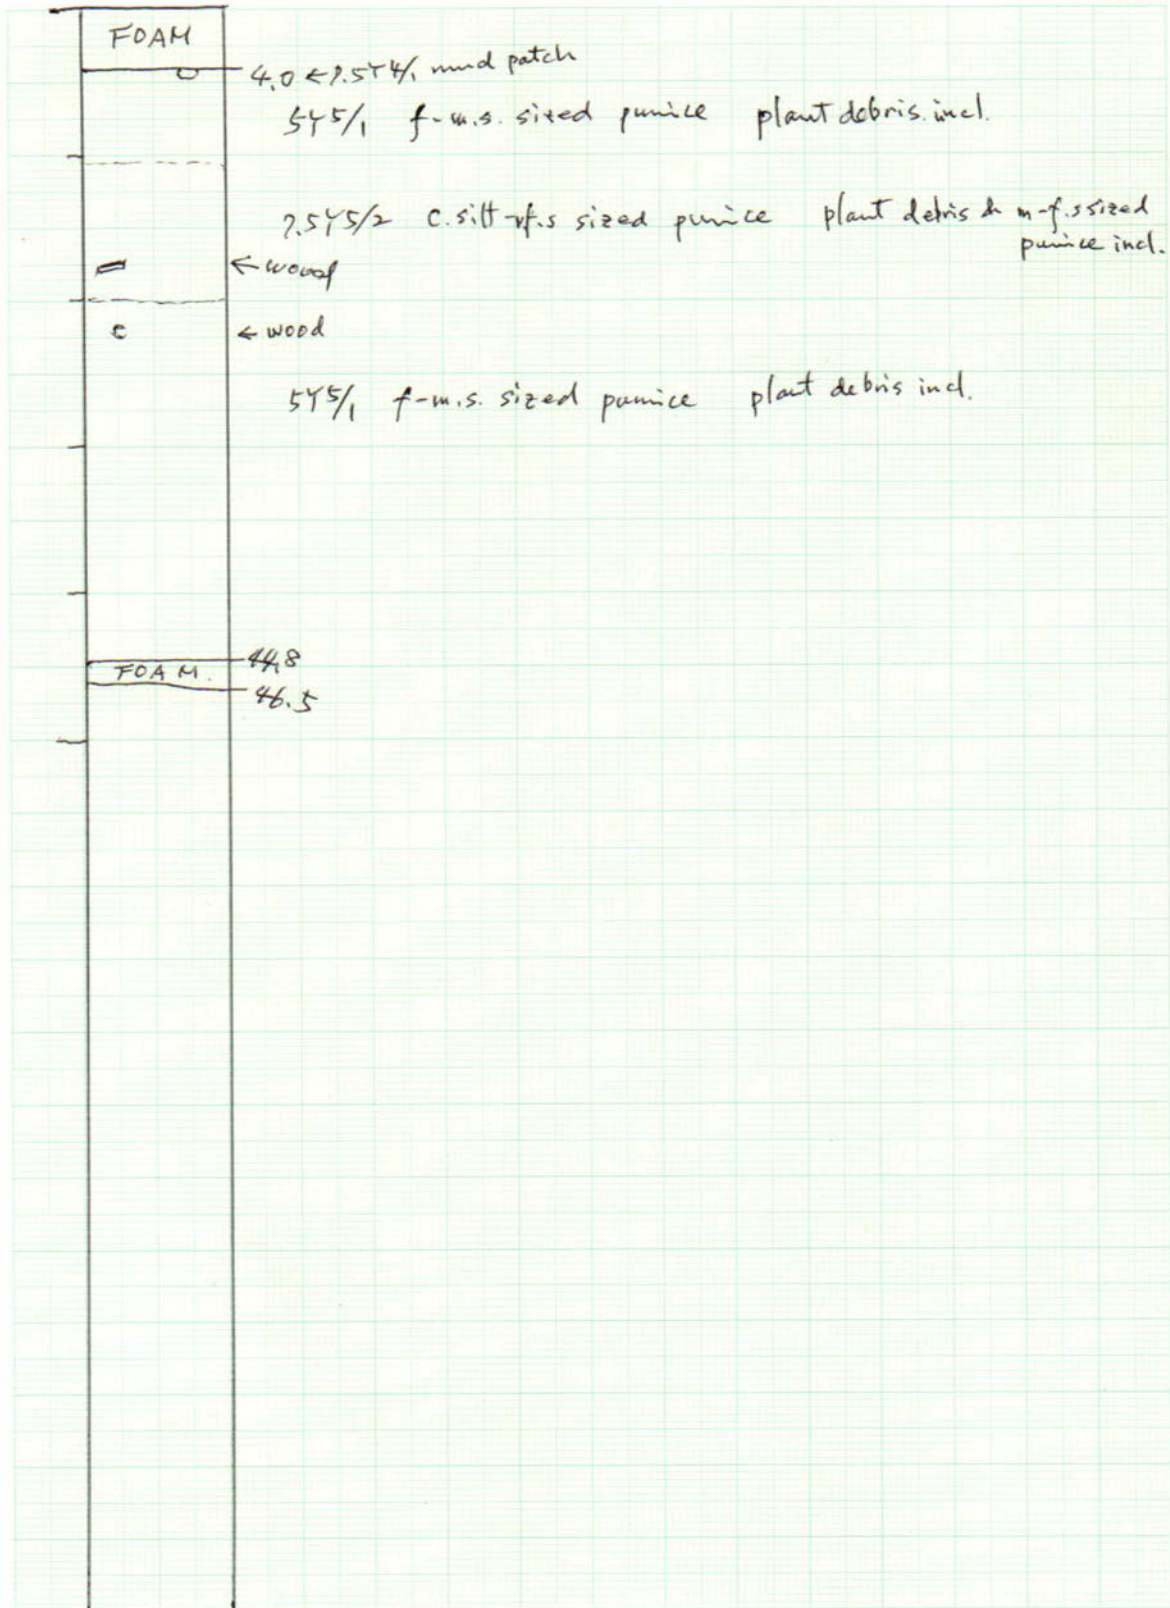 FOAM
4.0 ← 7.5Y 4/1 mud patch
5Y5/1 f-m.s. sized pumice plant debris incl.
7.5Y5/2 c.silt-vf.s sized pumice plant debris & m-f.s sized
pumice incl.
← wood
← wood
5Y5/1 f-m.s. sized pumice plant debris incl.
44.8
FOAM.
46.5